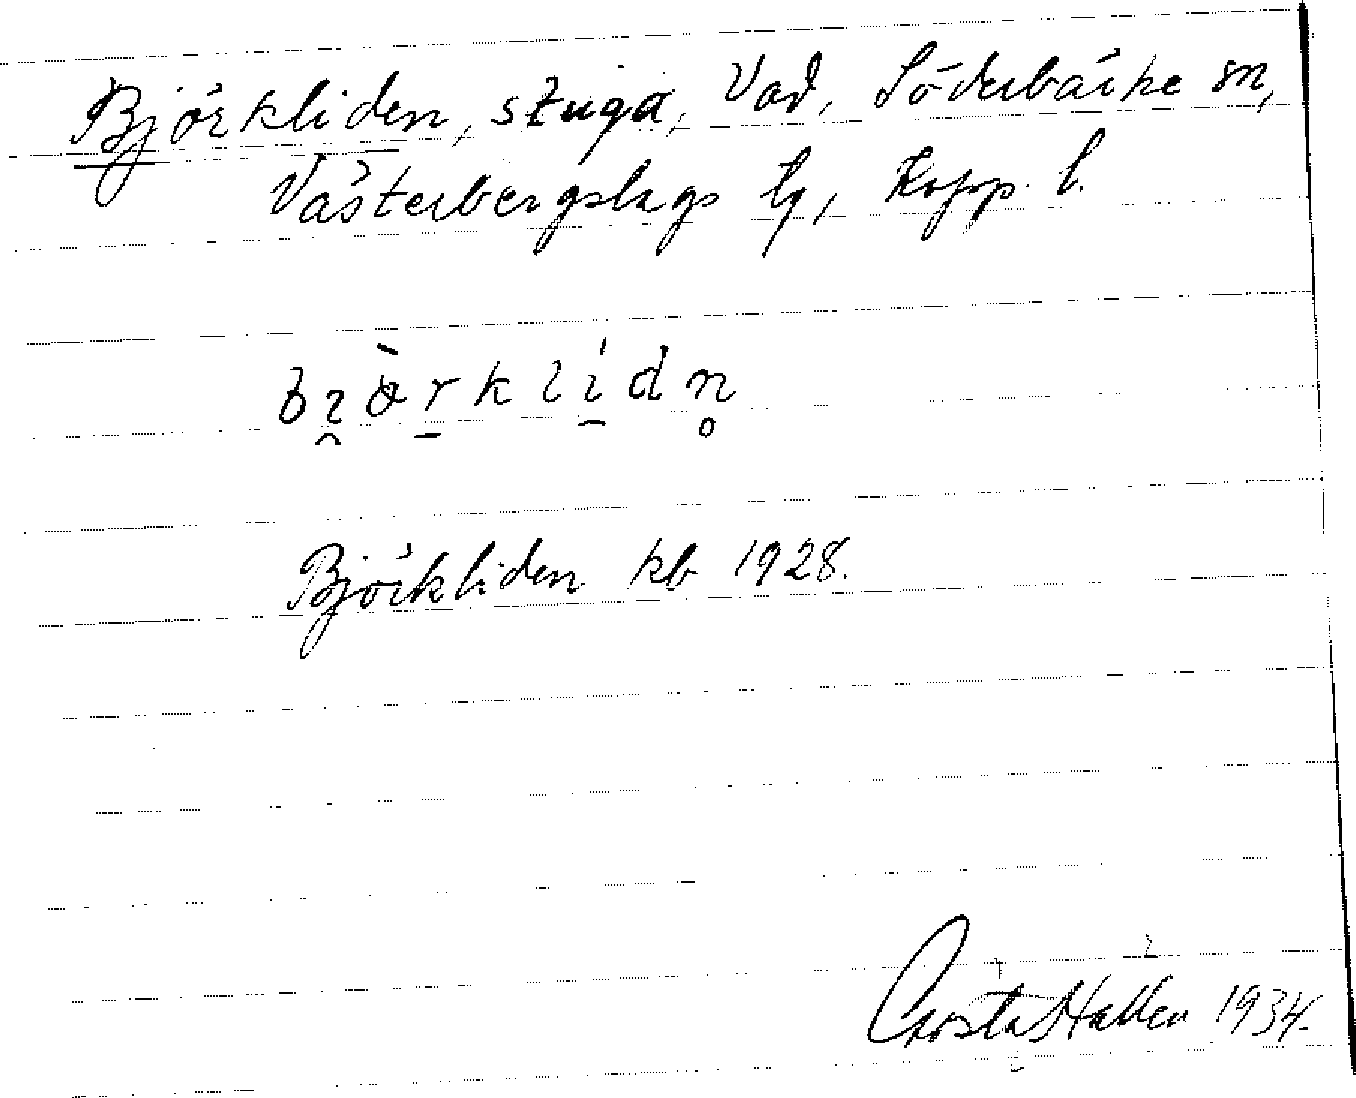 Björkliden, stuga, Vad, Söderbärke sn,
Västerbergslags tg, Kopp. l.
Björkliden kb 1928.
Gösta Hallén 1934.